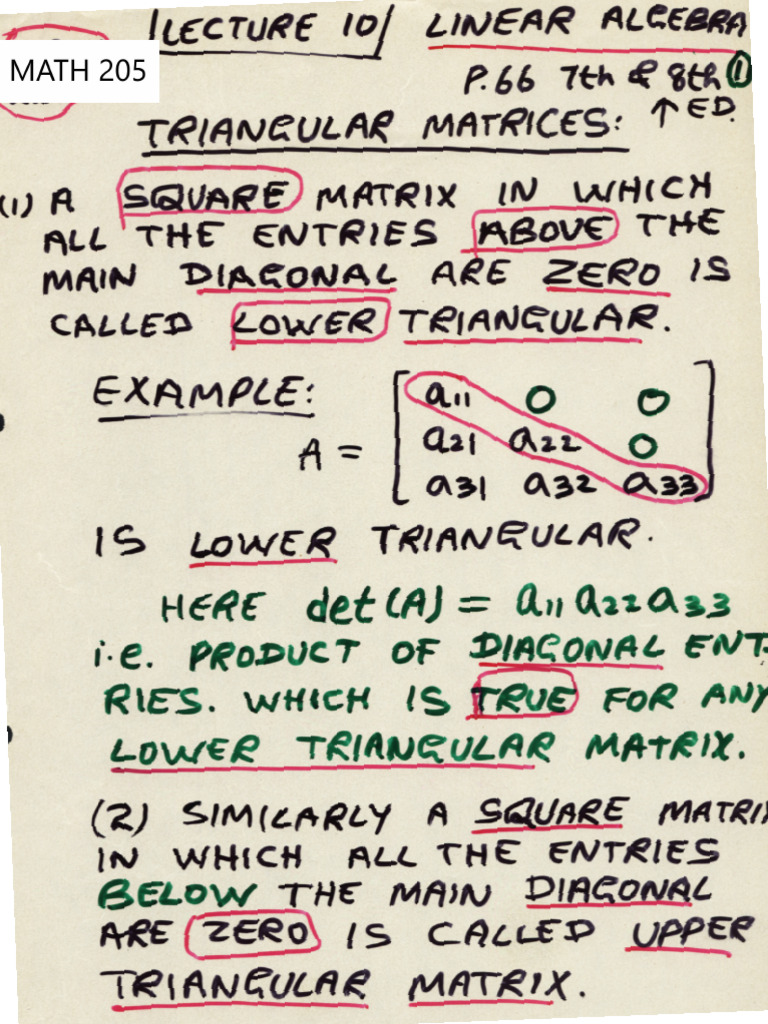 LECTURE 10 LINEAR ALGEBRA
MATH 205
P.66 7th & 8th 1
↑ ED.
TRIANGULAR MATRICES:
(1) A SQUARE MATRIX IN WHICH
ALL THE ENTRIES ABOVE THE
MAIN DIAGONAL ARE ZERO IS
CALLED LOWER TRIANGULAR.
EXAMPLE:
a11 0 0
A = a21 a22 0
a31 a32 a33
IS LOWER TRIANGULAR.
HERE det(A) = a11 a22 a33
i.e. PRODUCT OF DIAGONAL ENT-
RIES. WHICH IS TRUE FOR ANY
LOWER TRIANGULAR MATRIX.
(2) SIMILARLY A SQUARE MATRIX
IN WHICH ALL THE ENTRIES
BELOW THE MAIN DIAGONAL
ARE ZERO IS CALLED UPPER
TRIANGULAR MATRIX.